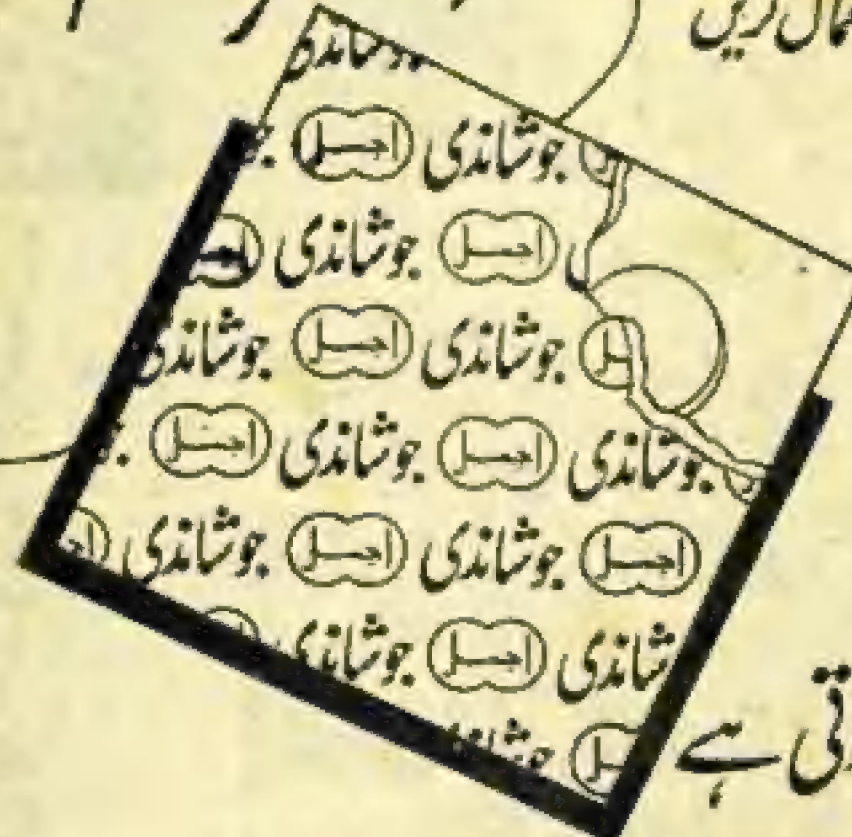 کریں
جوشاندی
جوشاندی اجمل
اجمل جوشاندی
جوشاندی اجمل جوشاندی
جوشاندی اجمل جوشاندی اجمل
اجمل جوشاندی اجمل جوشاندی
شاندی اجمل جوشاندی
ہے